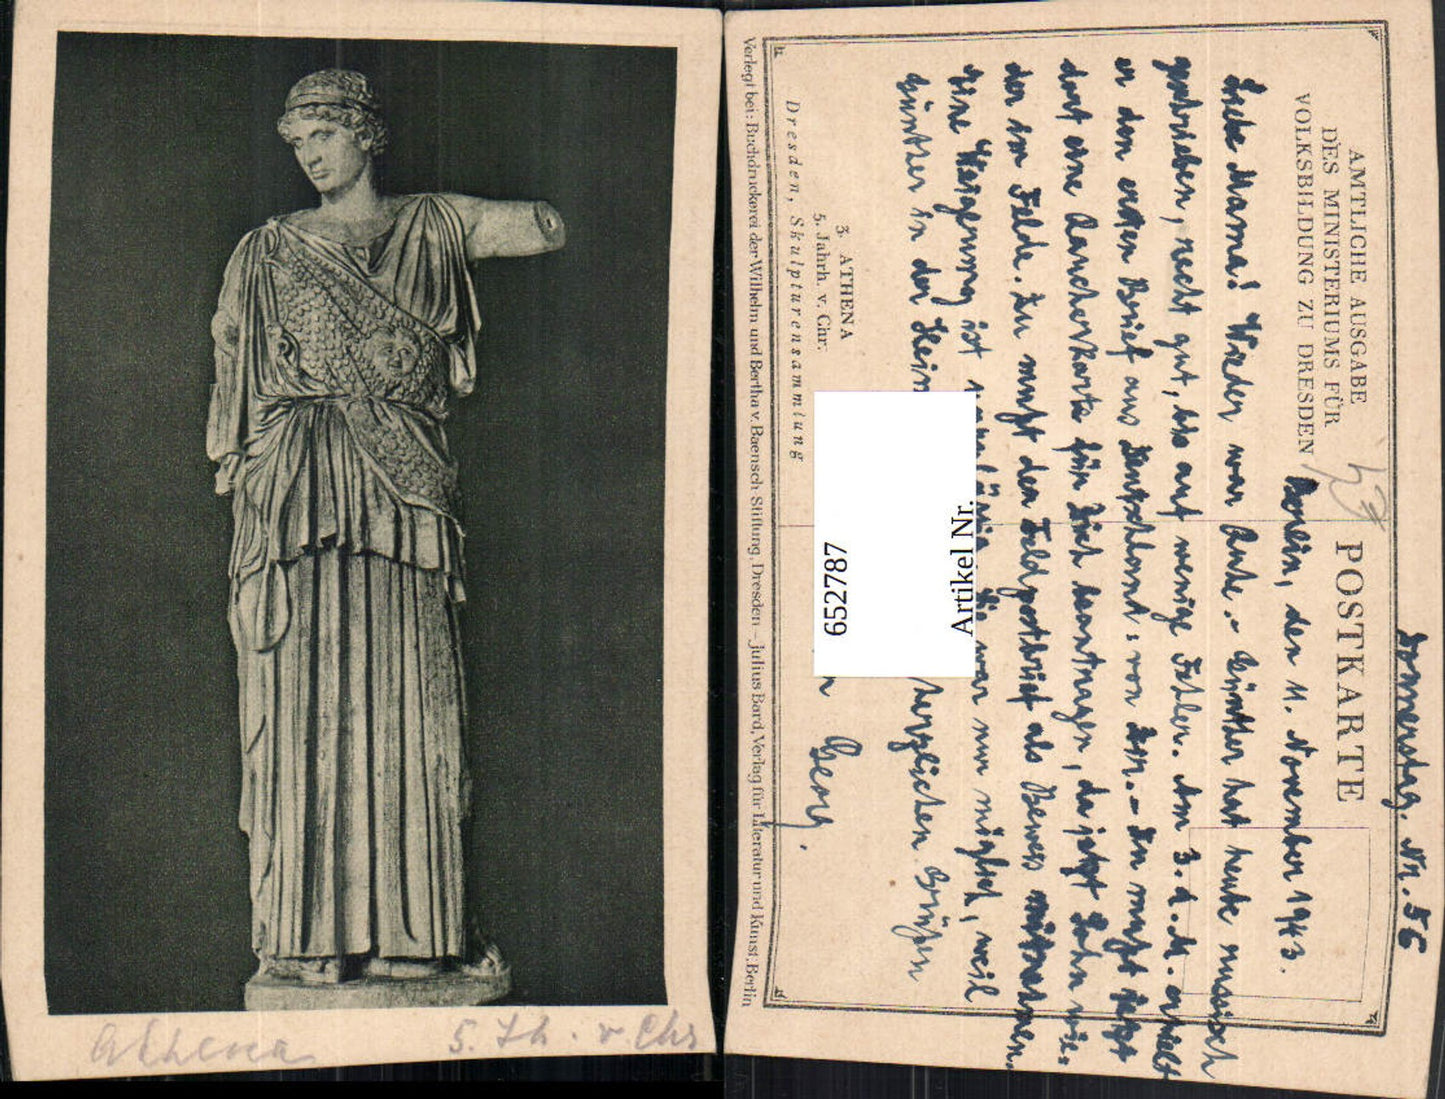 Athena 5. Jh. v. Chr
Donnerstag. Nr. 56
AMTLICHE AUSGABE
DES MINISTERIUMS FÜR
VOLKSBILDUNG ZU DRESDEN
POSTKARTE
Berlin, den 11. November 1943.
Liebe Mama! Wieder war Ruhe. - Günther hat heute russisch
geschrieben, recht gut, bis auf wenige Fehler. Am 3. d. M. erhielt
er den ersten Brief aus Deutschland: von Dir. - Du mußt jetzt
dort eine Raucherkarte für Dich beantragen, da jetzt Sohn wie-
der im Felde. Du mußt den Feldpostbrief als Beweis mitnehmen.
Eine Weigerung ist Sie war nur möglich, weil
Günther in der herzlichen Grüßen
Georg.
3. ATHENA
5. Jahrh. v. Chr.
Dresden, Skulpturensammlung
Verlegt bei: Buchdruckerei der Wilhelm und Bertha v. Baensch Stiftung, Dresden – Julius Bard, Verlag für Literatur und Kunst, Berlin
652787
Artikel Nr.